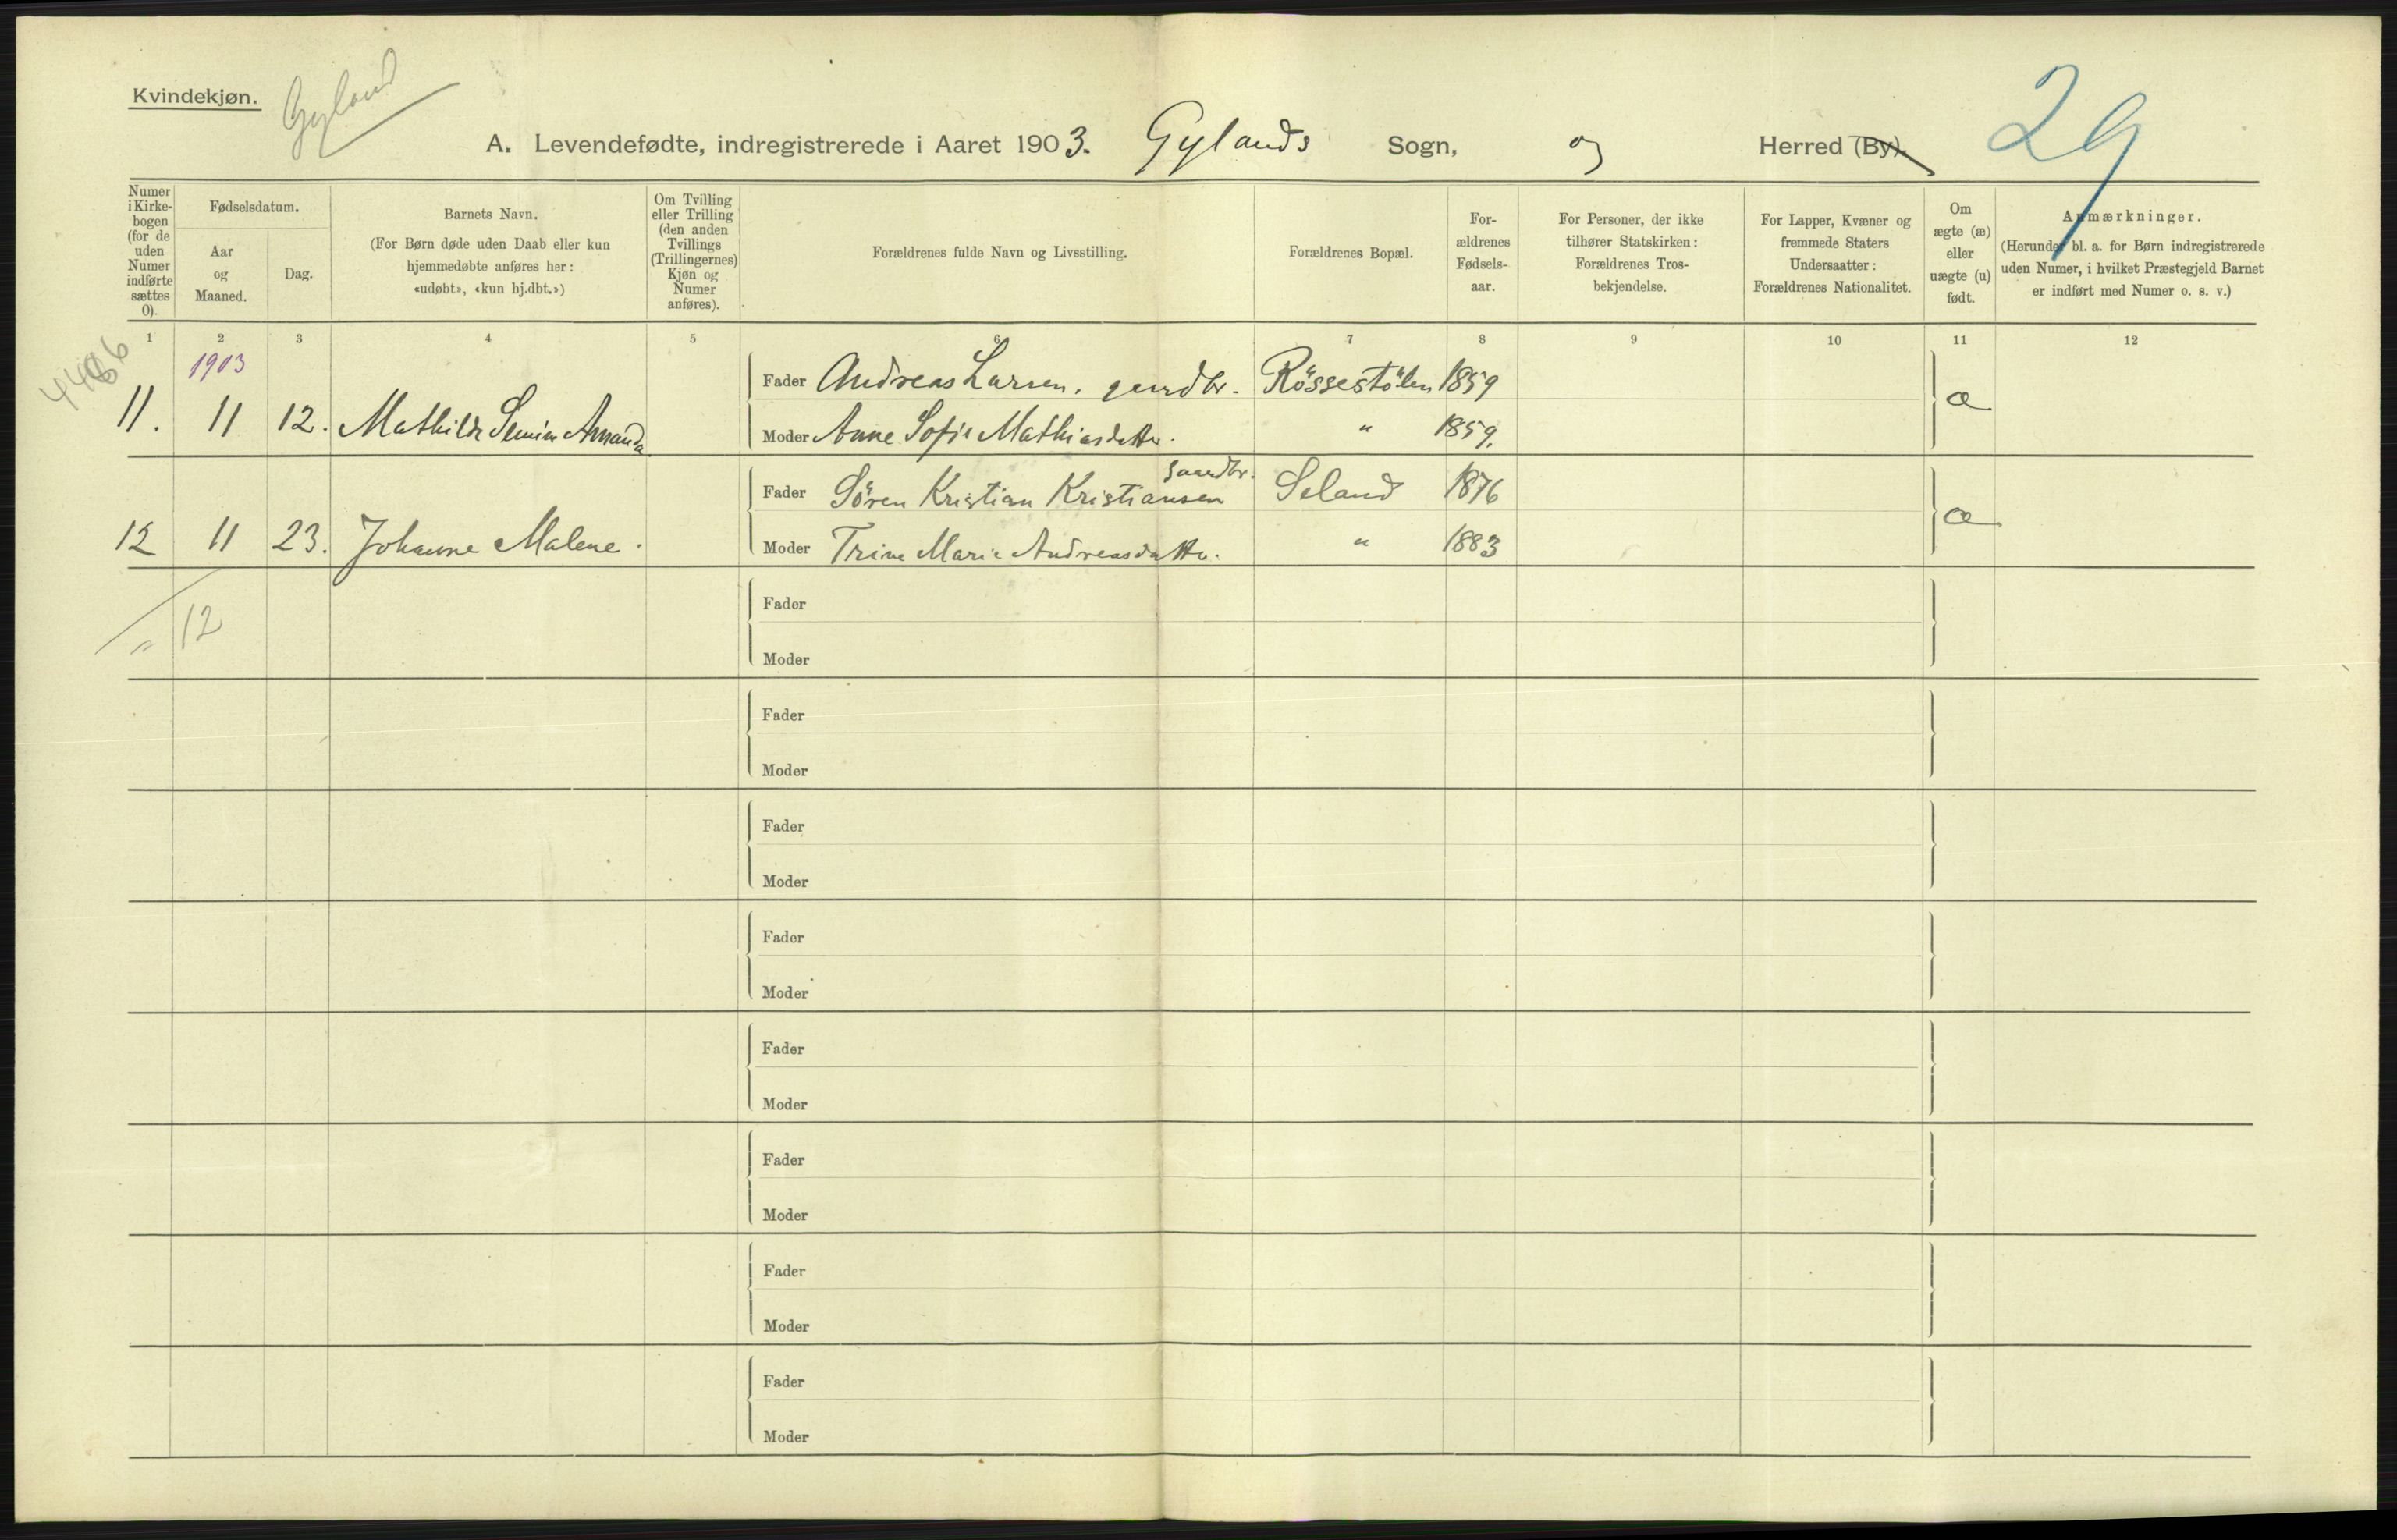 Kvindekjøn.
Gyland
A. Levendefødte, indregistrerede i Aaret 1903. Gylands Sogn, og Herred (By).
29
Numer i Kirke-bogen (for de uden Numer indførte sættes 0).
Fødselsdatum.
Aar og Maaned.
Dag.
Barnets Navn.
(For Børn døde uden Daab eller kun hjemmedøbte anføres her: «udøbt», «kun hj.dbt.»)
Om Tvilling eller Trilling (den anden Tvillings (Trillingernes) Kjøn og Numer anføres).
Forældrenes fulde Navn og Livsstilling.
Forældrenes Bopæl.
For-ældrenes Fødsels-aar.
For Personer, der ikke tilhører Statskirken: Forældrenes Tros-bekjendelse.
For Lapper, Kvæner og fremmede Staters Undersaatter: Forældrenes Nationalitet.
Om ægte (æ) eller uægte (u) født.
Anmærkninger.
(Herunder bl. a. for Børn indregistrerede uden Numer, i hvilket Præstegjeld Barnet er indført med Numer o. s. v.)
1 2 3 4 5 6 7 8 9 10 11 12
1903
Fader Andreas Larsen, gaardbr. Røssestølen 1859
11. 11 12. Mathilde Amanda æ
Moder Anne Sofie Mathiasdatter. " 1859.
gaardbr.
Fader Søren Kristian Kristiansen Seland 1876
12 11 23. Johanne Malene. æ
Moder Trine Marie Andreasdatter. " 1883
Fader
" 12
Moder
Fader
Moder
Fader
Moder
Fader
Moder
Fader
Moder
Fader
Moder
Fader
Moder
Fader
Moder